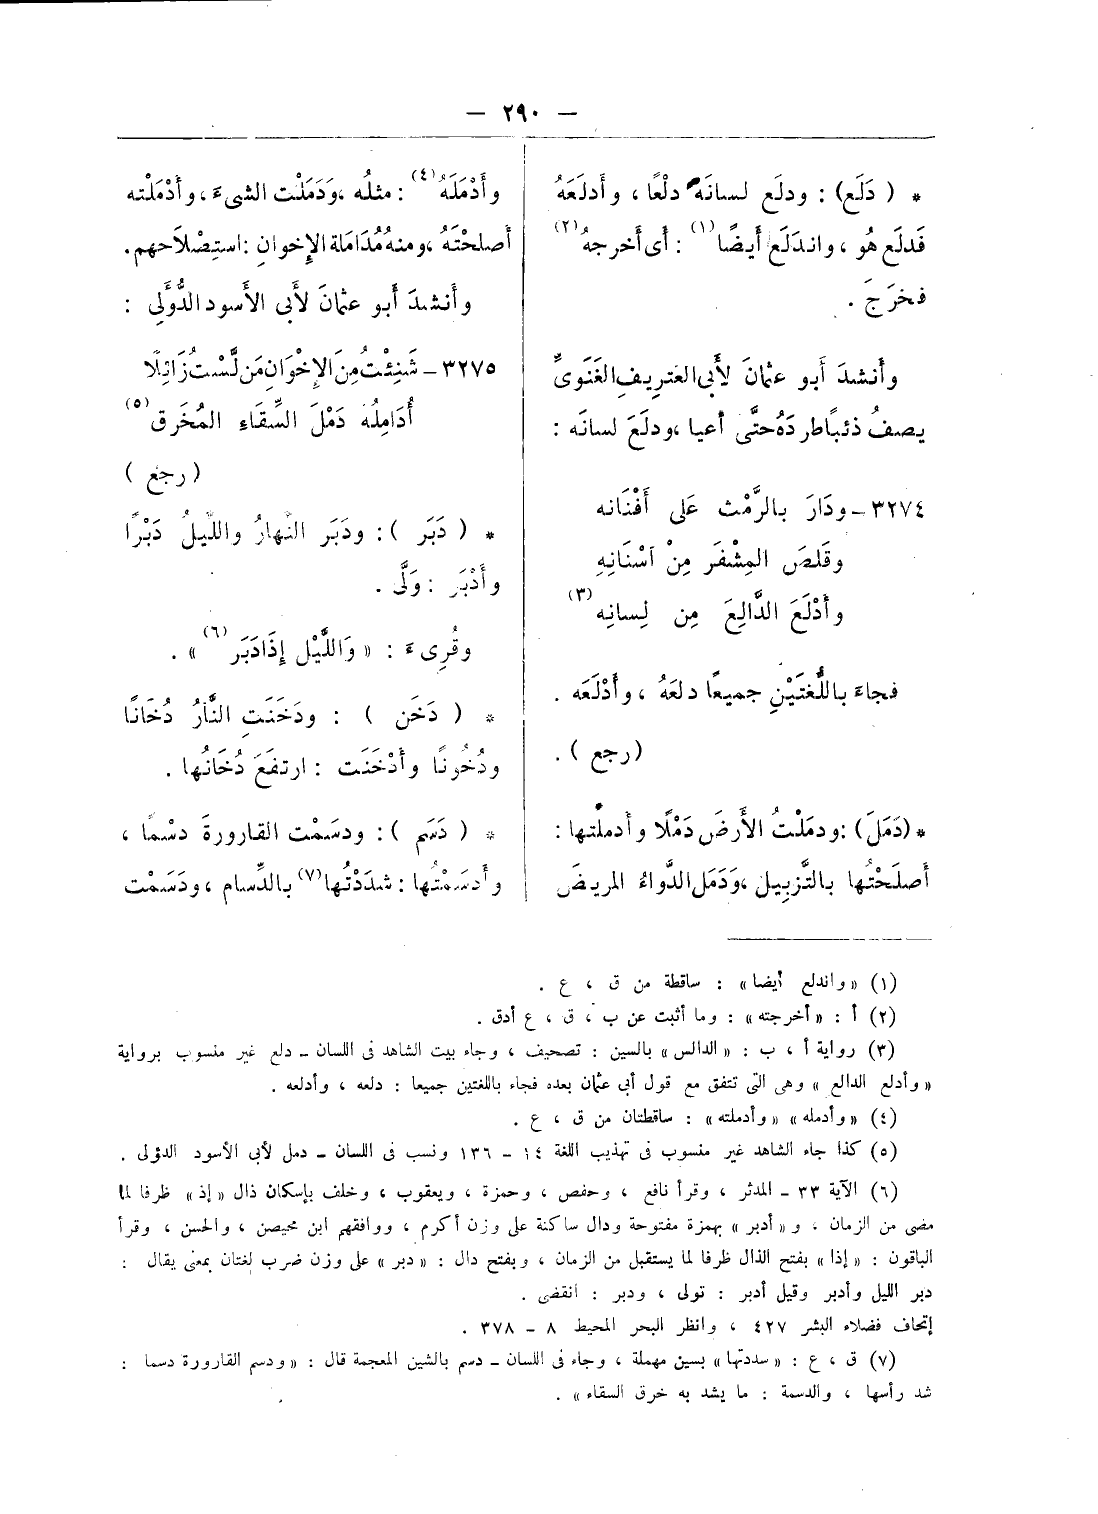 — ٢٩٠ —
* ( دَلَع) : ودلَع لسانَه دلْعًا ، وأَدلَعَهُ
فَدلَع هُو ، واندَلَع أَيضًا (١) : أَى أَخرجهُ (٢)
فخرَجَ .
وأَنشدَ أَبو عثمانَ لأَبى العتريفِ الغَنَوىِّ
يصفُ ذئبًا طردَهُ حتَّى أَعيا ، ودلَعَ لسانَه :
٣٢٧٤ – ودَارَ بالرَّمْث عَلى أَفْنَانه
وقَلصَ المِشْفَر مِنْ اَسْنَانِهِ
وأَدْلَعَ الدَّالِعَ مِن لِسانِه (٣)
فجاءَ باللُّغتَيْنِ جميعًا دلعَهُ ، وأَدْلَعَه .
(رجع ) .
* (دَمَلَ) : ودملْتُ الأَرضَ دَمْلًا وأَدملتها :
أَصلَحْتُها بالتَّزبِيل ، وَدَمَل الدَّواءُ المريضَ
وأَدْمَلَهُ (٤) : مثلُه ، وَدَمَلْت الشىءَ ، وأَدْمَلْته
أَصلحْتَهُ ، ومنهُ مُدَامَلة الإِخوانِ : استِصْلاَحهم .
وأَنشدَ أَبو عثمانَ لأَبى الأَسود الدُّؤَلِى :
٣٢٧٥ – شَنِئْتُ مِنَ الإِخْوَانِ مَن لَّسْتُ زَائِلًا
أُدَامِلُهُ دَمْلَ السِّقَاءِ المُخَرق (٥)
( رجع )
* ( دَبَر ) : ودَبَر النَّهارُ واللَّيلُ دَبْرًا
وأَدْبَرَ : وَلَّى .
وقُرِىءَ : « وَاللَّيْل إِذَادَبَر (٦) » .
* ( دَخَن ) : ودَخَنَتِ النَّارُ دُخَانًا
ودُخُونًا وأَدْخَنَت : ارتفَعَ دُخَانُها .
* ( دَسَم ) : ودسَمْت القارورةَ دسْمًا ،
وأَدسَمْتُها : شدَدْتُها (٧) بالدِّسام ، ودَسَمْت
(١) « واندلع أيضا » : ساقطة من ق ، ع .
(٢) أ : « أخرجته » : وما أثبت عن ب ، ق ، ع أدق .
(٣) رواية أ ، ب : « الدالس » بالسين : تصحيف ، وجاء بيت الشاهد فى اللسان – دلع غير منسوب برواية
« وأدلع الدالع » وهى التى تتفق مع قول أبى عثمان بعده فجاء باللغتين جميعا : دلعه ، وأدلعه .
(٤) « وأدمله » « وأدملته » : ساقطتان من ق ، ع .
(٥) كذا جاء الشاهد غير منسوب فى تهذيب اللغة ١٤ – ١٣٦ ونسب فى اللسان – دمل لأبى الأسود الدؤلى .
(٦) الآية ٣٣ – المدثر ، وقرأ نافع ، وحفص ، وحمزة ، ويعقوب ، وخلف بإسكان ذال « إذ » ظرفا لما
مضى من الزمان ، و « أدبر » بهمزة مفتوحة ودال ساكنة على وزن أكرم ، ووافقهم ابن محيصن ، والحسن ، وقرأ
الباقون : « إذا » بفتح الذال ظرفا لما يستقبل من الزمان ، وبفتح دال : « دبر » على وزن ضرب لغتان بمعنى يقال :
دبر الليل وأدبر وقيل أدبر : تولى ، ودبر : انقضى .
إتحاف فضلاء البشر ٤٢٧ ، وانظر البحر المحيط ٨ – ٣٧٨ .
(٧) ق ، ع : « سددتها » بسين مهملة ، وجاء فى اللسان – دسم بالشين المعجمة قال : « ودسم القارورة دسما :
شد رأسها ، والدسمة : ما يشد به خرق السقاء » .